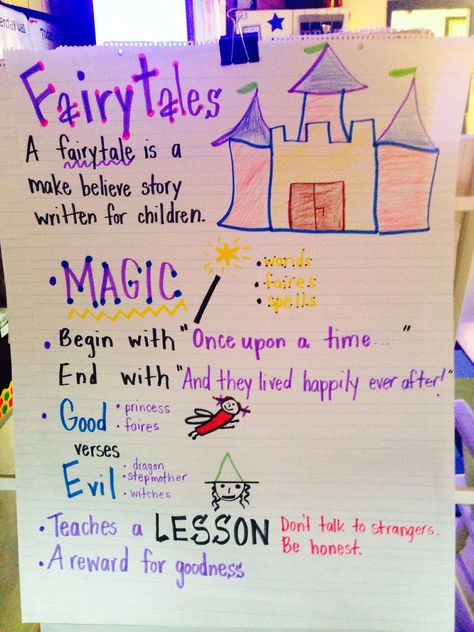 Fairytales
A fairytale is a
make believe story
written for children.
• MAGIC
• wands
• faires
• spells
• Begin with "Once upon a time... "
End with "And they lived happily ever after!"
• Good • princess
• faires
verses
Evil • dragon
• stepmother
• witches
• Teaches a LESSON Don't talk to strangers.
Be honest.
• A reward for goodness